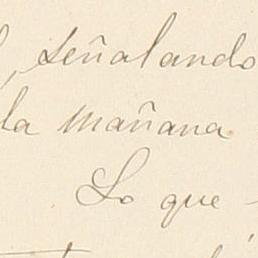 , señalando
la mañana.
Lo que